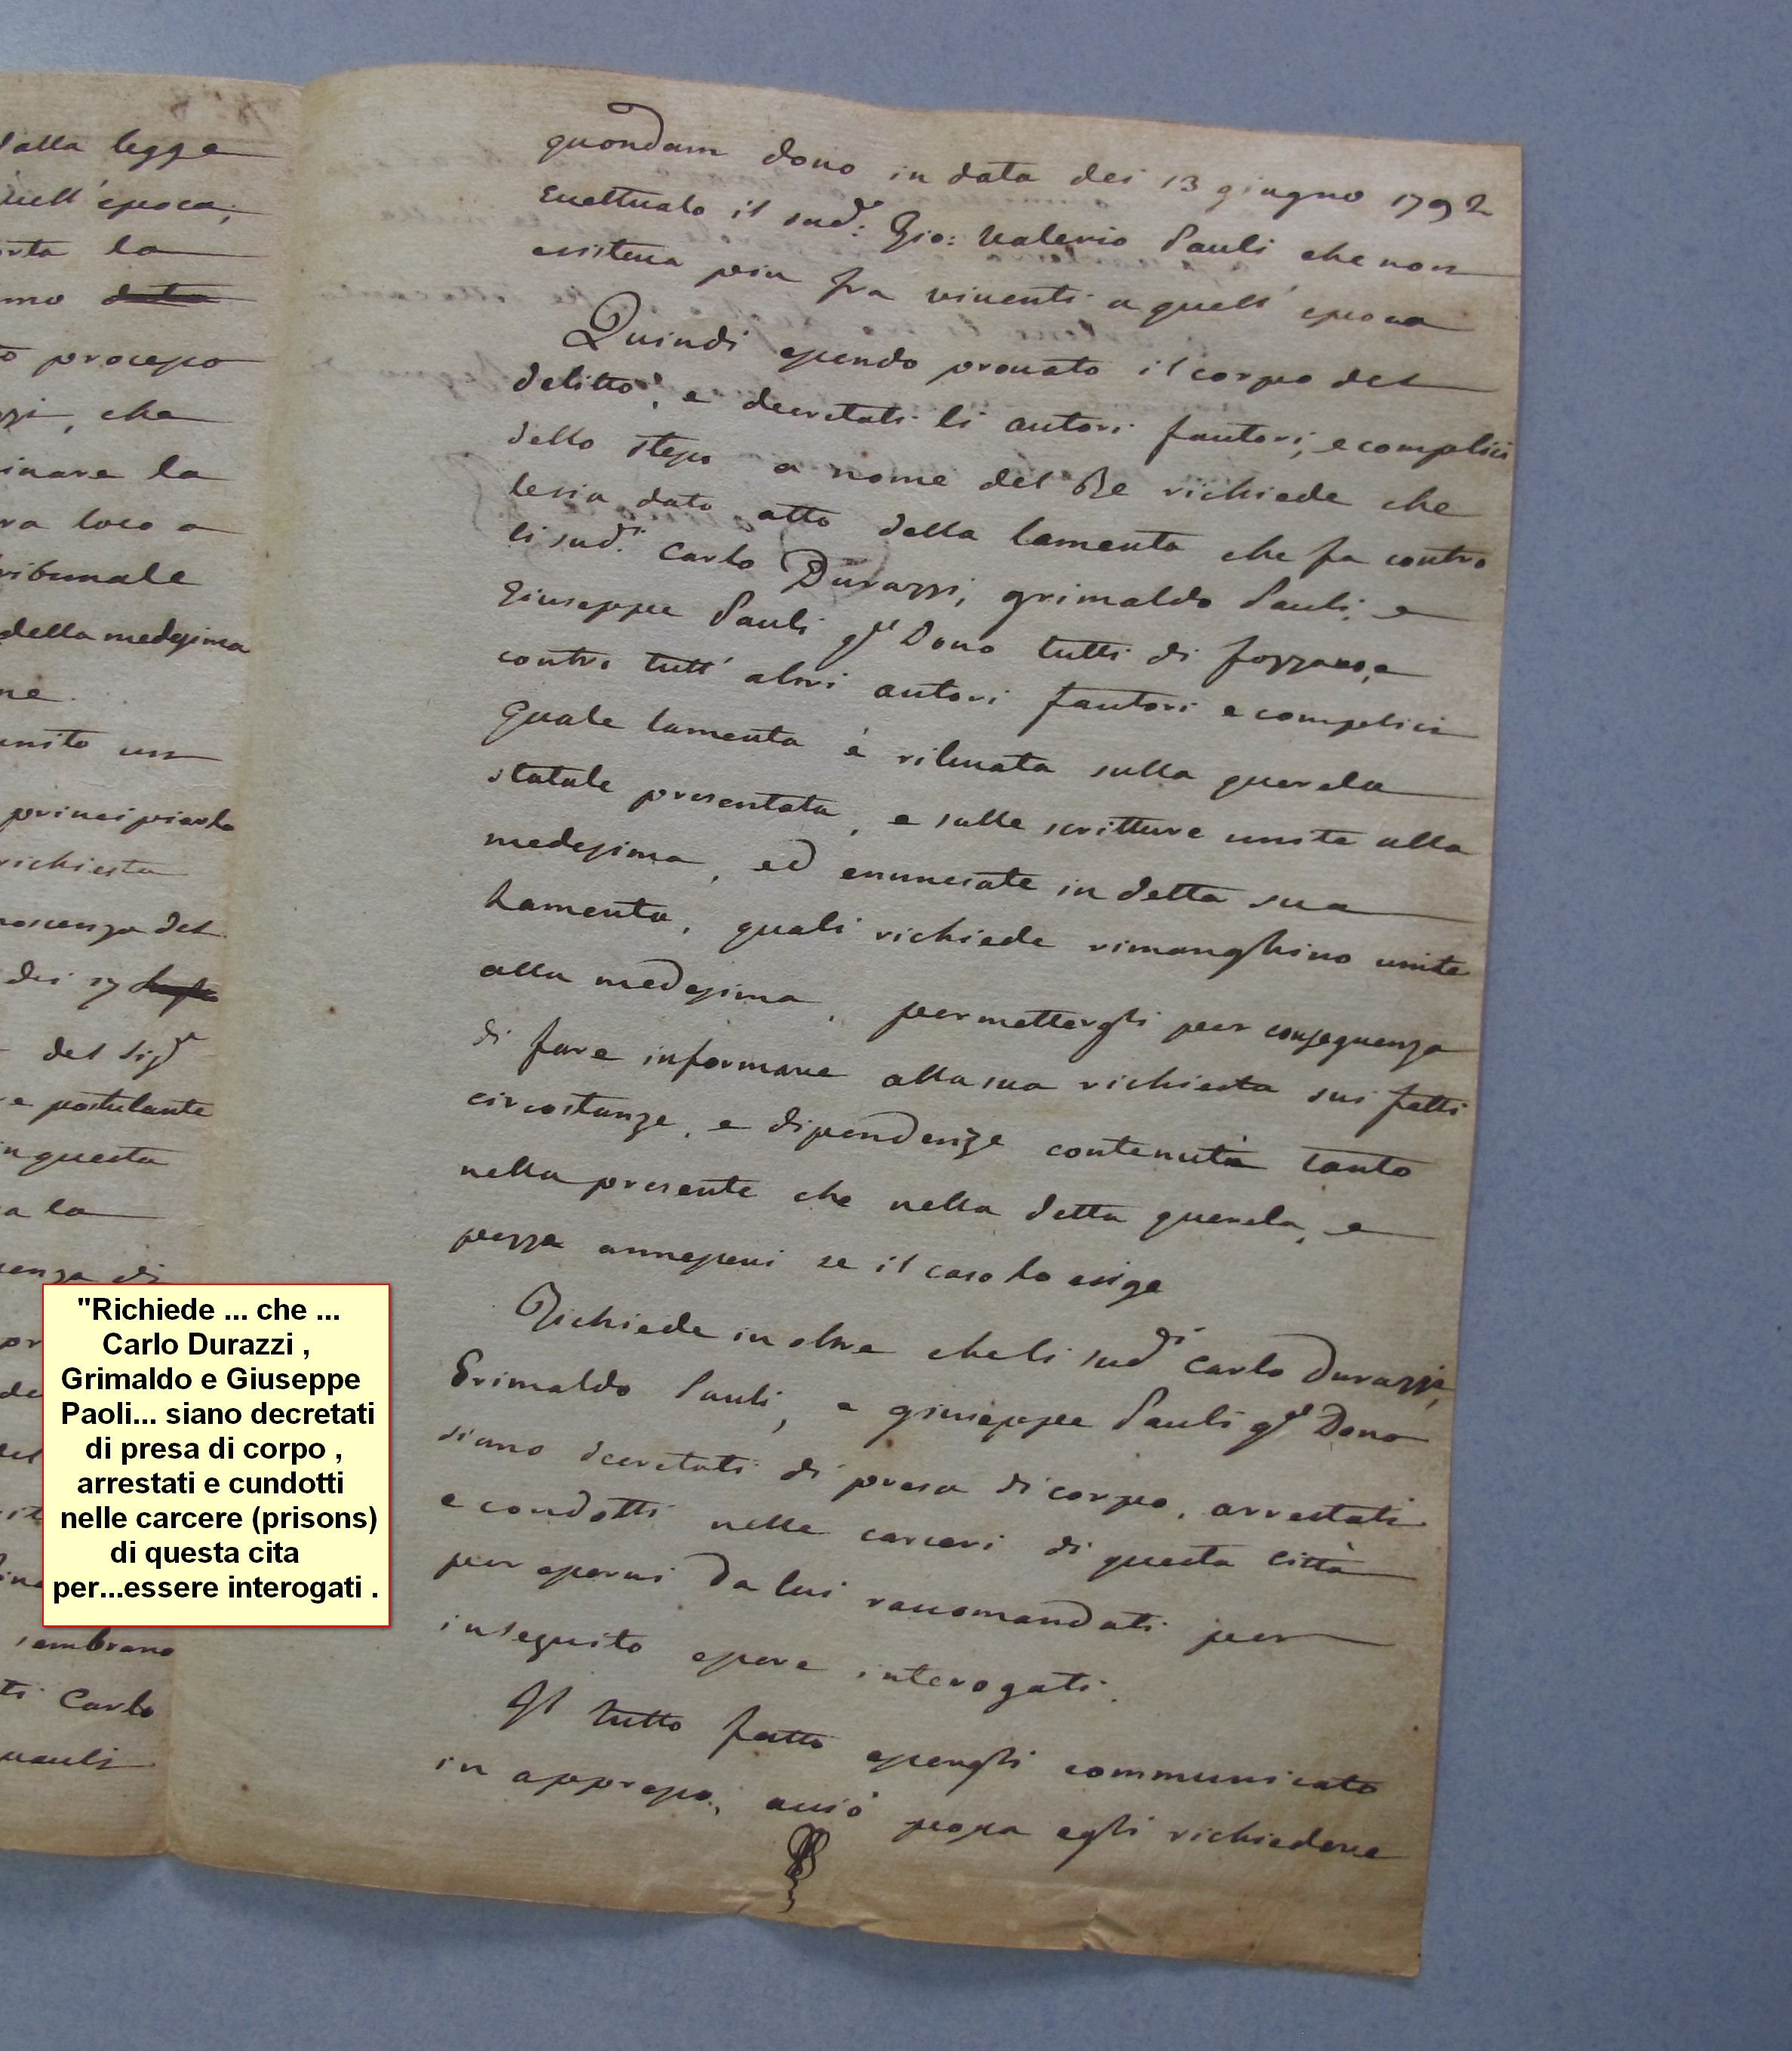 dalla legge
quell'epoca,
la
mo data
processo
che
la
loco a
tribunale
della medesima
ne
unito un
principiarla
richiesta
del
dei 17
del Sig.re
e postulante
inquesta
a la
di
sembrano
ti Carlo
pauli
quondam dono in data dei 13 giugno 1792
Ecettuato il sud.o: Gio: Valerio Pauli che non
esisteva piu fra viventi a quell'epoca
Quindi essendo provato il corpo del
delitto, e decretati li autori fautori, e complici
dello stesso a nome del Re richiede che
lesia dato atto della lamenta che fa contro
li sud.i Carlo Durazzi, grimaldo Pauli, e
Giuseppe Pauli q.m Dono tutti di fozzano, e
contro tutt'altri autori fautori e complici
Quale lamenta è rilevata sulla querela
statale presentata, e sulle scritture unite alla
medesima, ed enunciate in detta sua
Lamenta, quali richiede rimanghino unite
alla medesima, permettergli per conseguenza
di fare informare alla sua richiesta sui fatti
circostanze, e dipendenze contenute tanto
nella presente che nella detta querela, e
pezze annessevi se il caso lo esige
Richiede in oltre che li sud.i Carlo Durazzi,
Grimaldo Pauli, e giuseppe Pauli q.m Dono
siano decretati di presa di corpo, arrestati
e condotti nelle carceri di questa Città
per esservi da lui raccomandati per
inseguito essere interogati.
Il tutto fatto essergli communicato
in appresso, acciò possa egli richiedere
"Richiede ... che ...
Carlo Durazzi ,
Grimaldo e Giuseppe
Paoli... siano decretati
di presa di corpo ,
arrestati e cundotti
nelle carcere (prisons)
di questa cita
per...essere interogati .